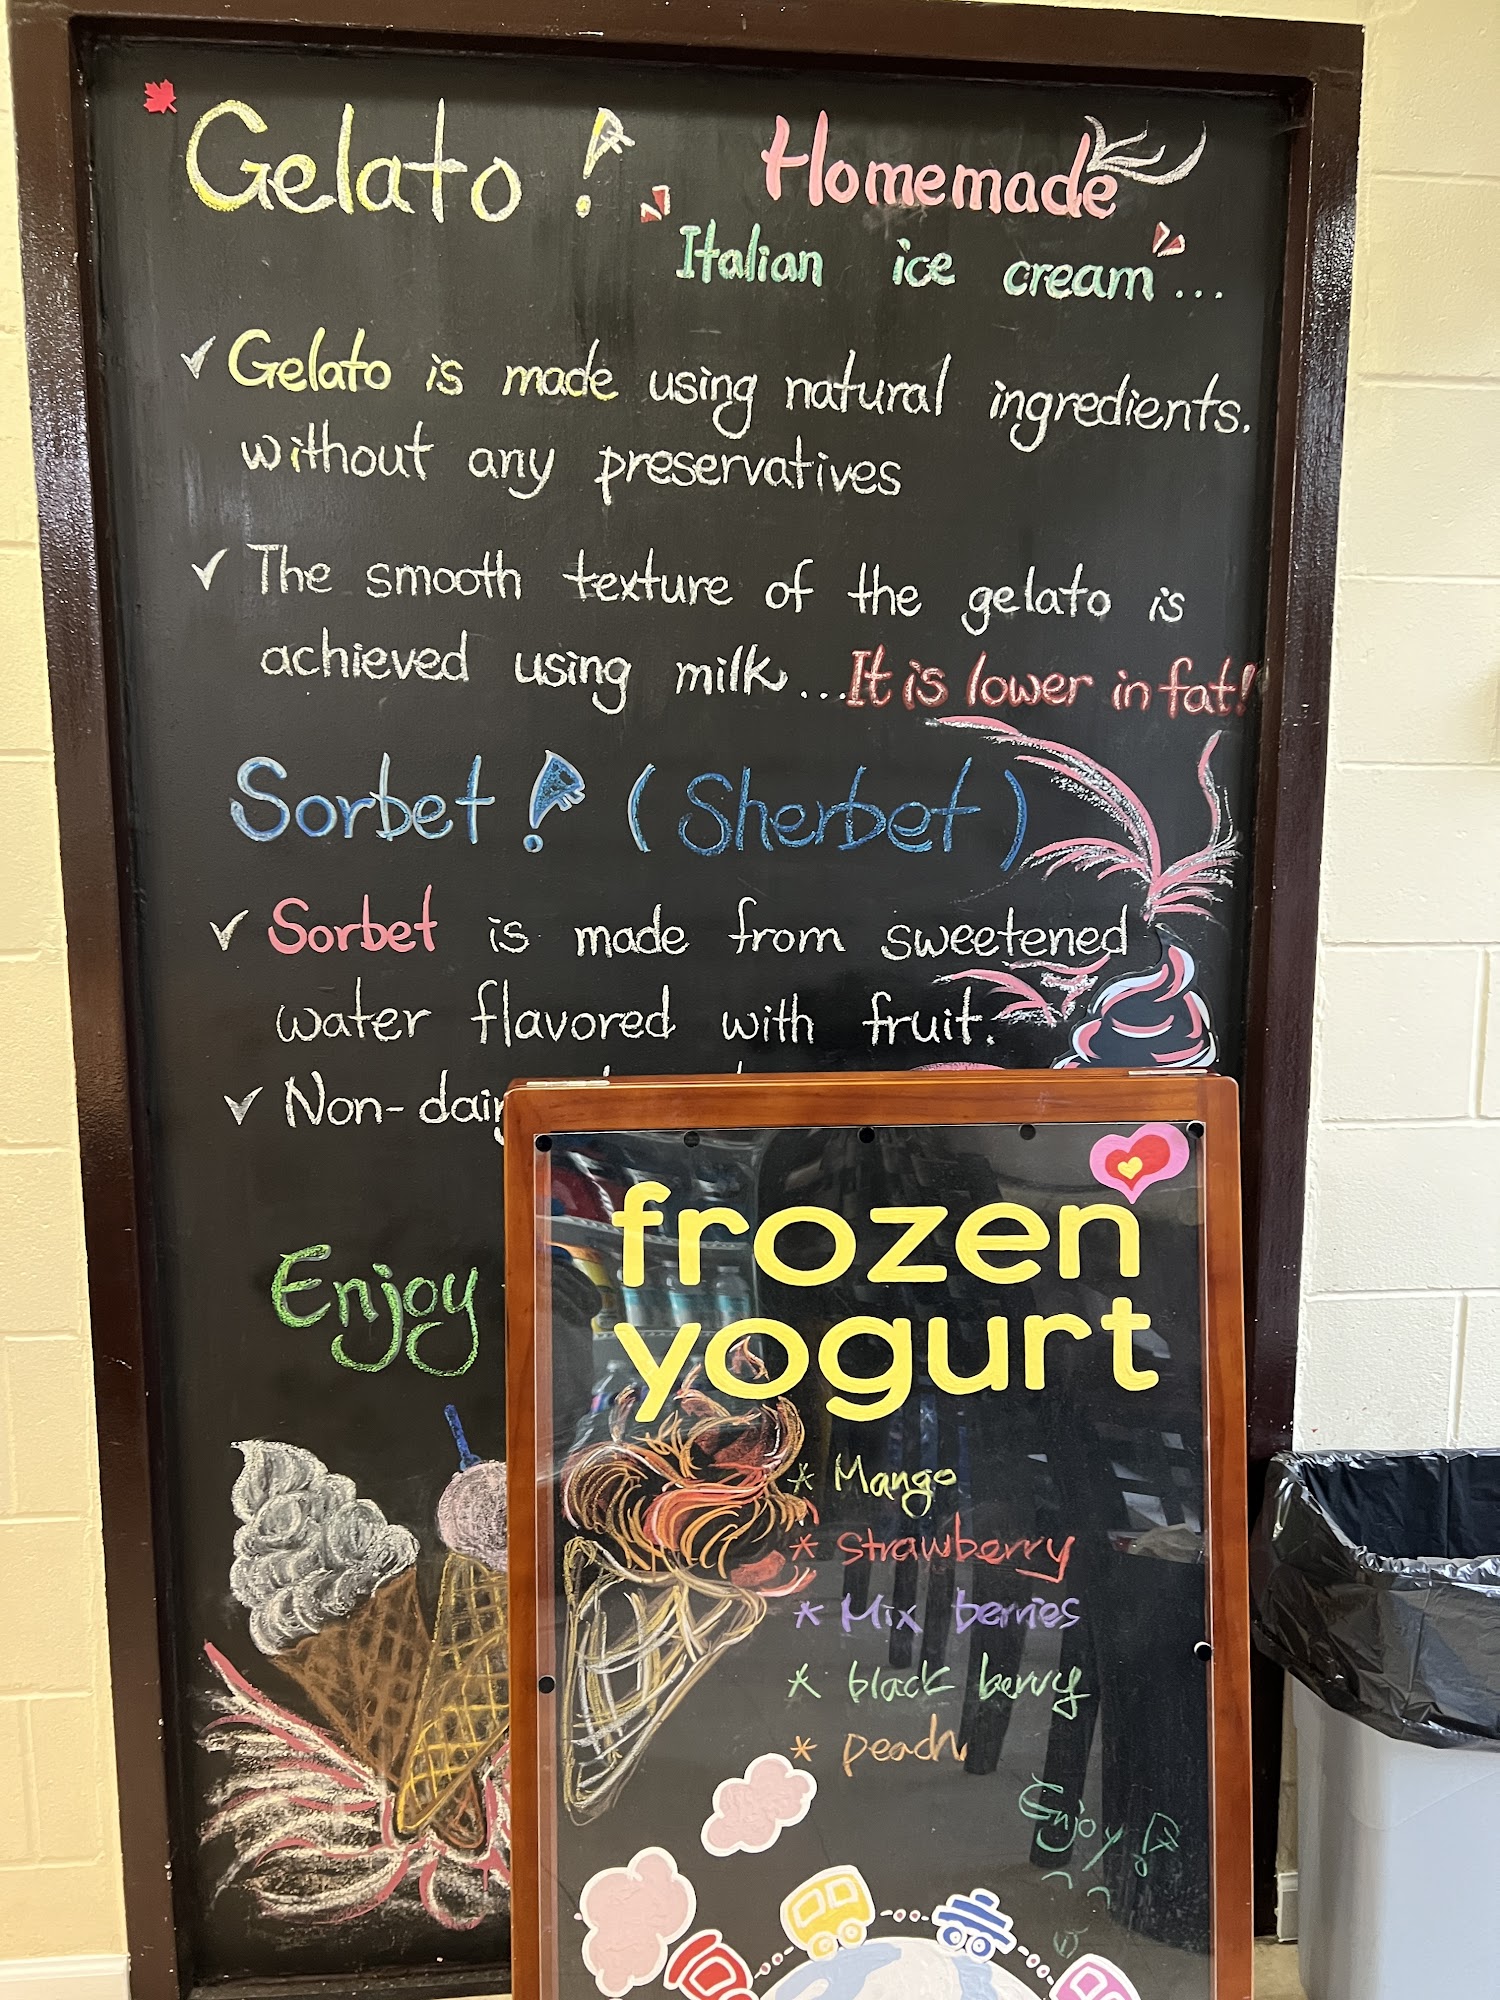 Gelato!
Homemade
Italian ice cream...
✓ Gelato is made using natural ingredients.
without any preservatives
✓ The smooth texture of the gelato is
achieved using milk... It is lower in fat!
Sorbet! (Sherbet)
✓ Sorbet is made from sweetened
water flavored with fruit.
✓ Non-dairy
Enjoy
frozen
yogurt
* Mango
* Strawberry
* Mix berries
* black berry
* peach
Enjoy!